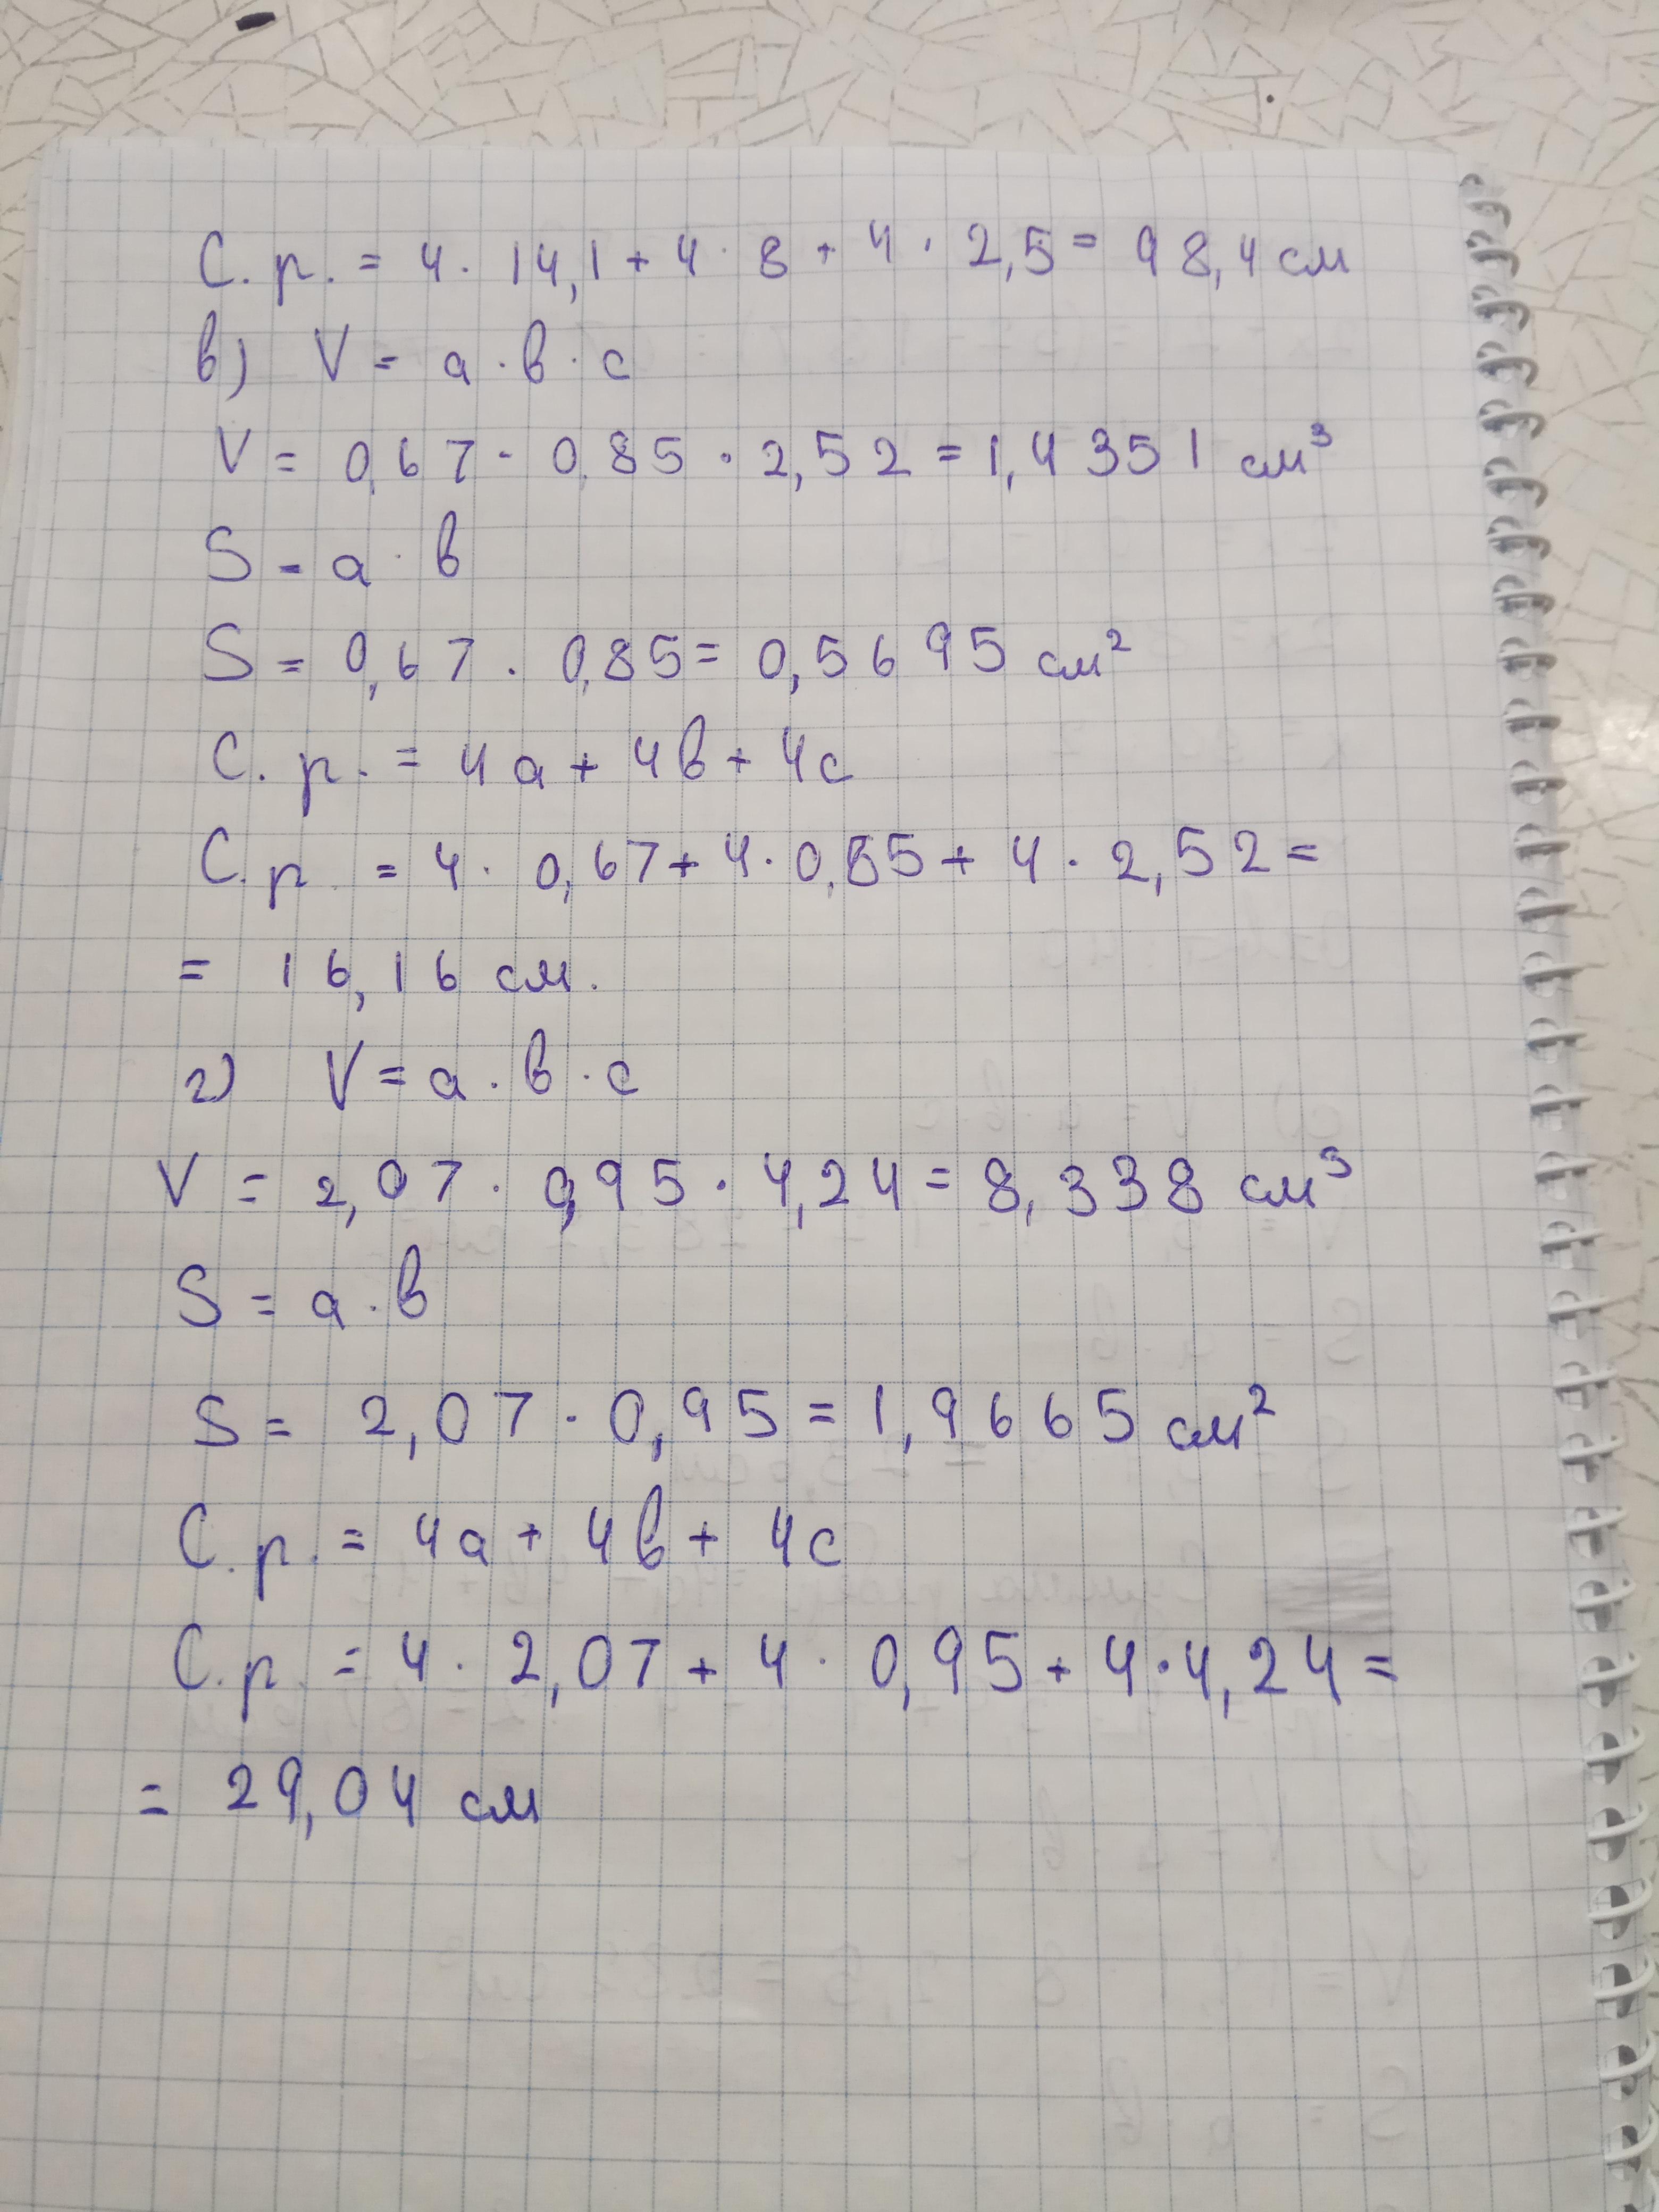 С.р. = 4 · 14,1 + 4 · 8 + 4 · 2,5 = 98,4 см
в) V = а · в · с
V = 0,67 · 0,85 · 2,52 = 1,4351 см³
S = а · в
S = 0,67 · 0,85 = 0,5695 см²
С.р. = 4а + 4в + 4с
С.р. = 4 · 0,67 + 4 · 0,85 + 4 · 2,52 =
= 16,16 см.
г) V = а · в · с
V = 2,07 · 0,95 · 4,24 = 8,338 см³
S = а · в
S = 2,07 · 0,95 = 1,9665 см²
С.р. = 4а + 4в + 4с
С.р. = 4 · 2,07 + 4 · 0,95 + 4 · 4,24 =
= 29,04 см